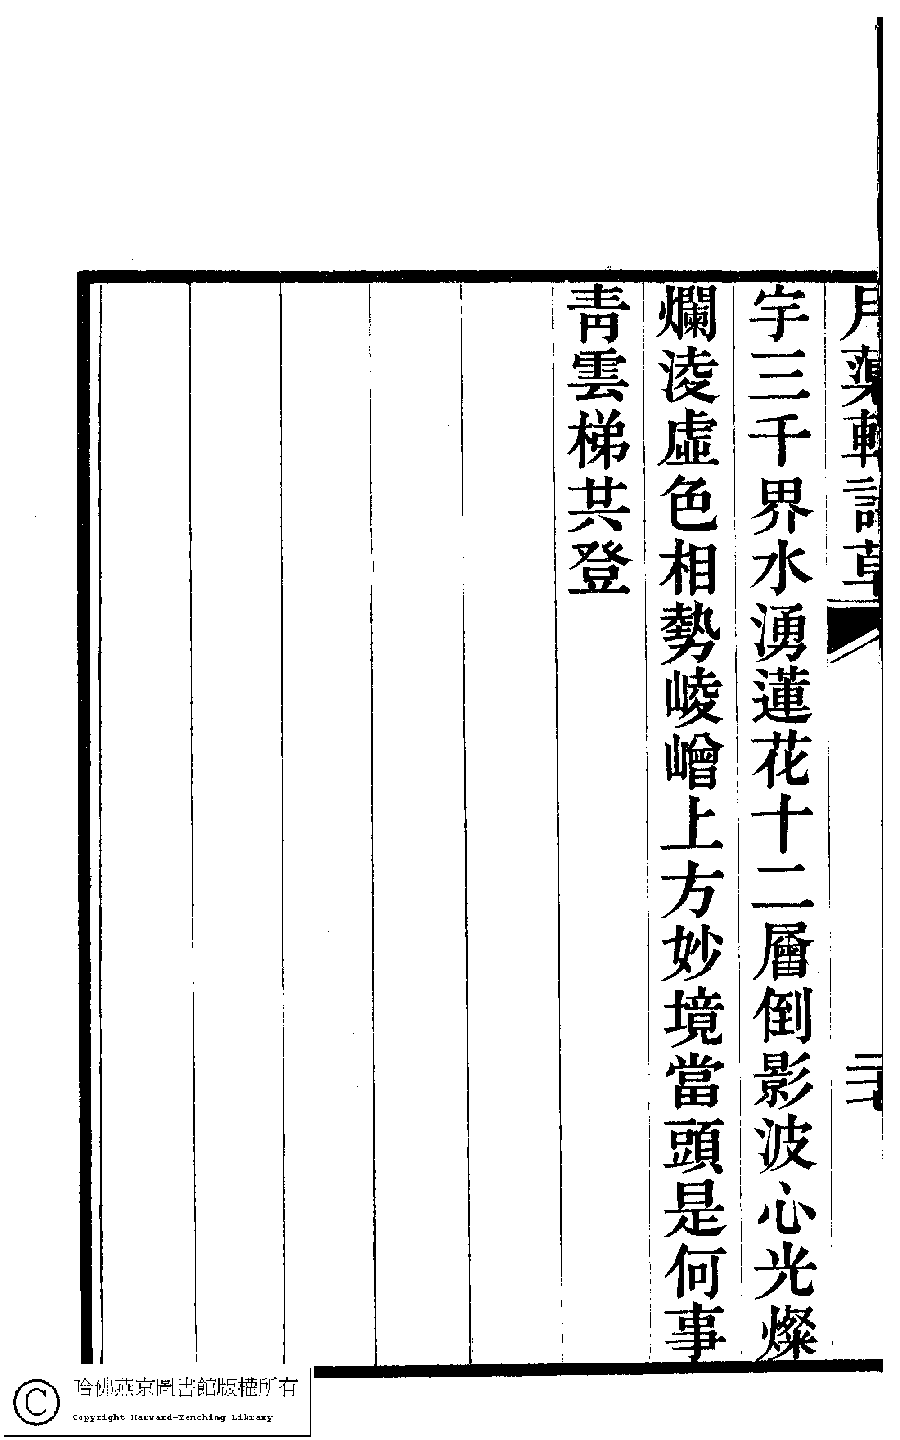 月蕖軒詩草
宇三千界水湧蓮花十二層倒影波心光燦
爛淩虛色相勢崚嶒上方妙境當頭是何事
靑雲梯共登
哈佛燕京圖書館版權所有
Copyright Harvard-Yenching Library